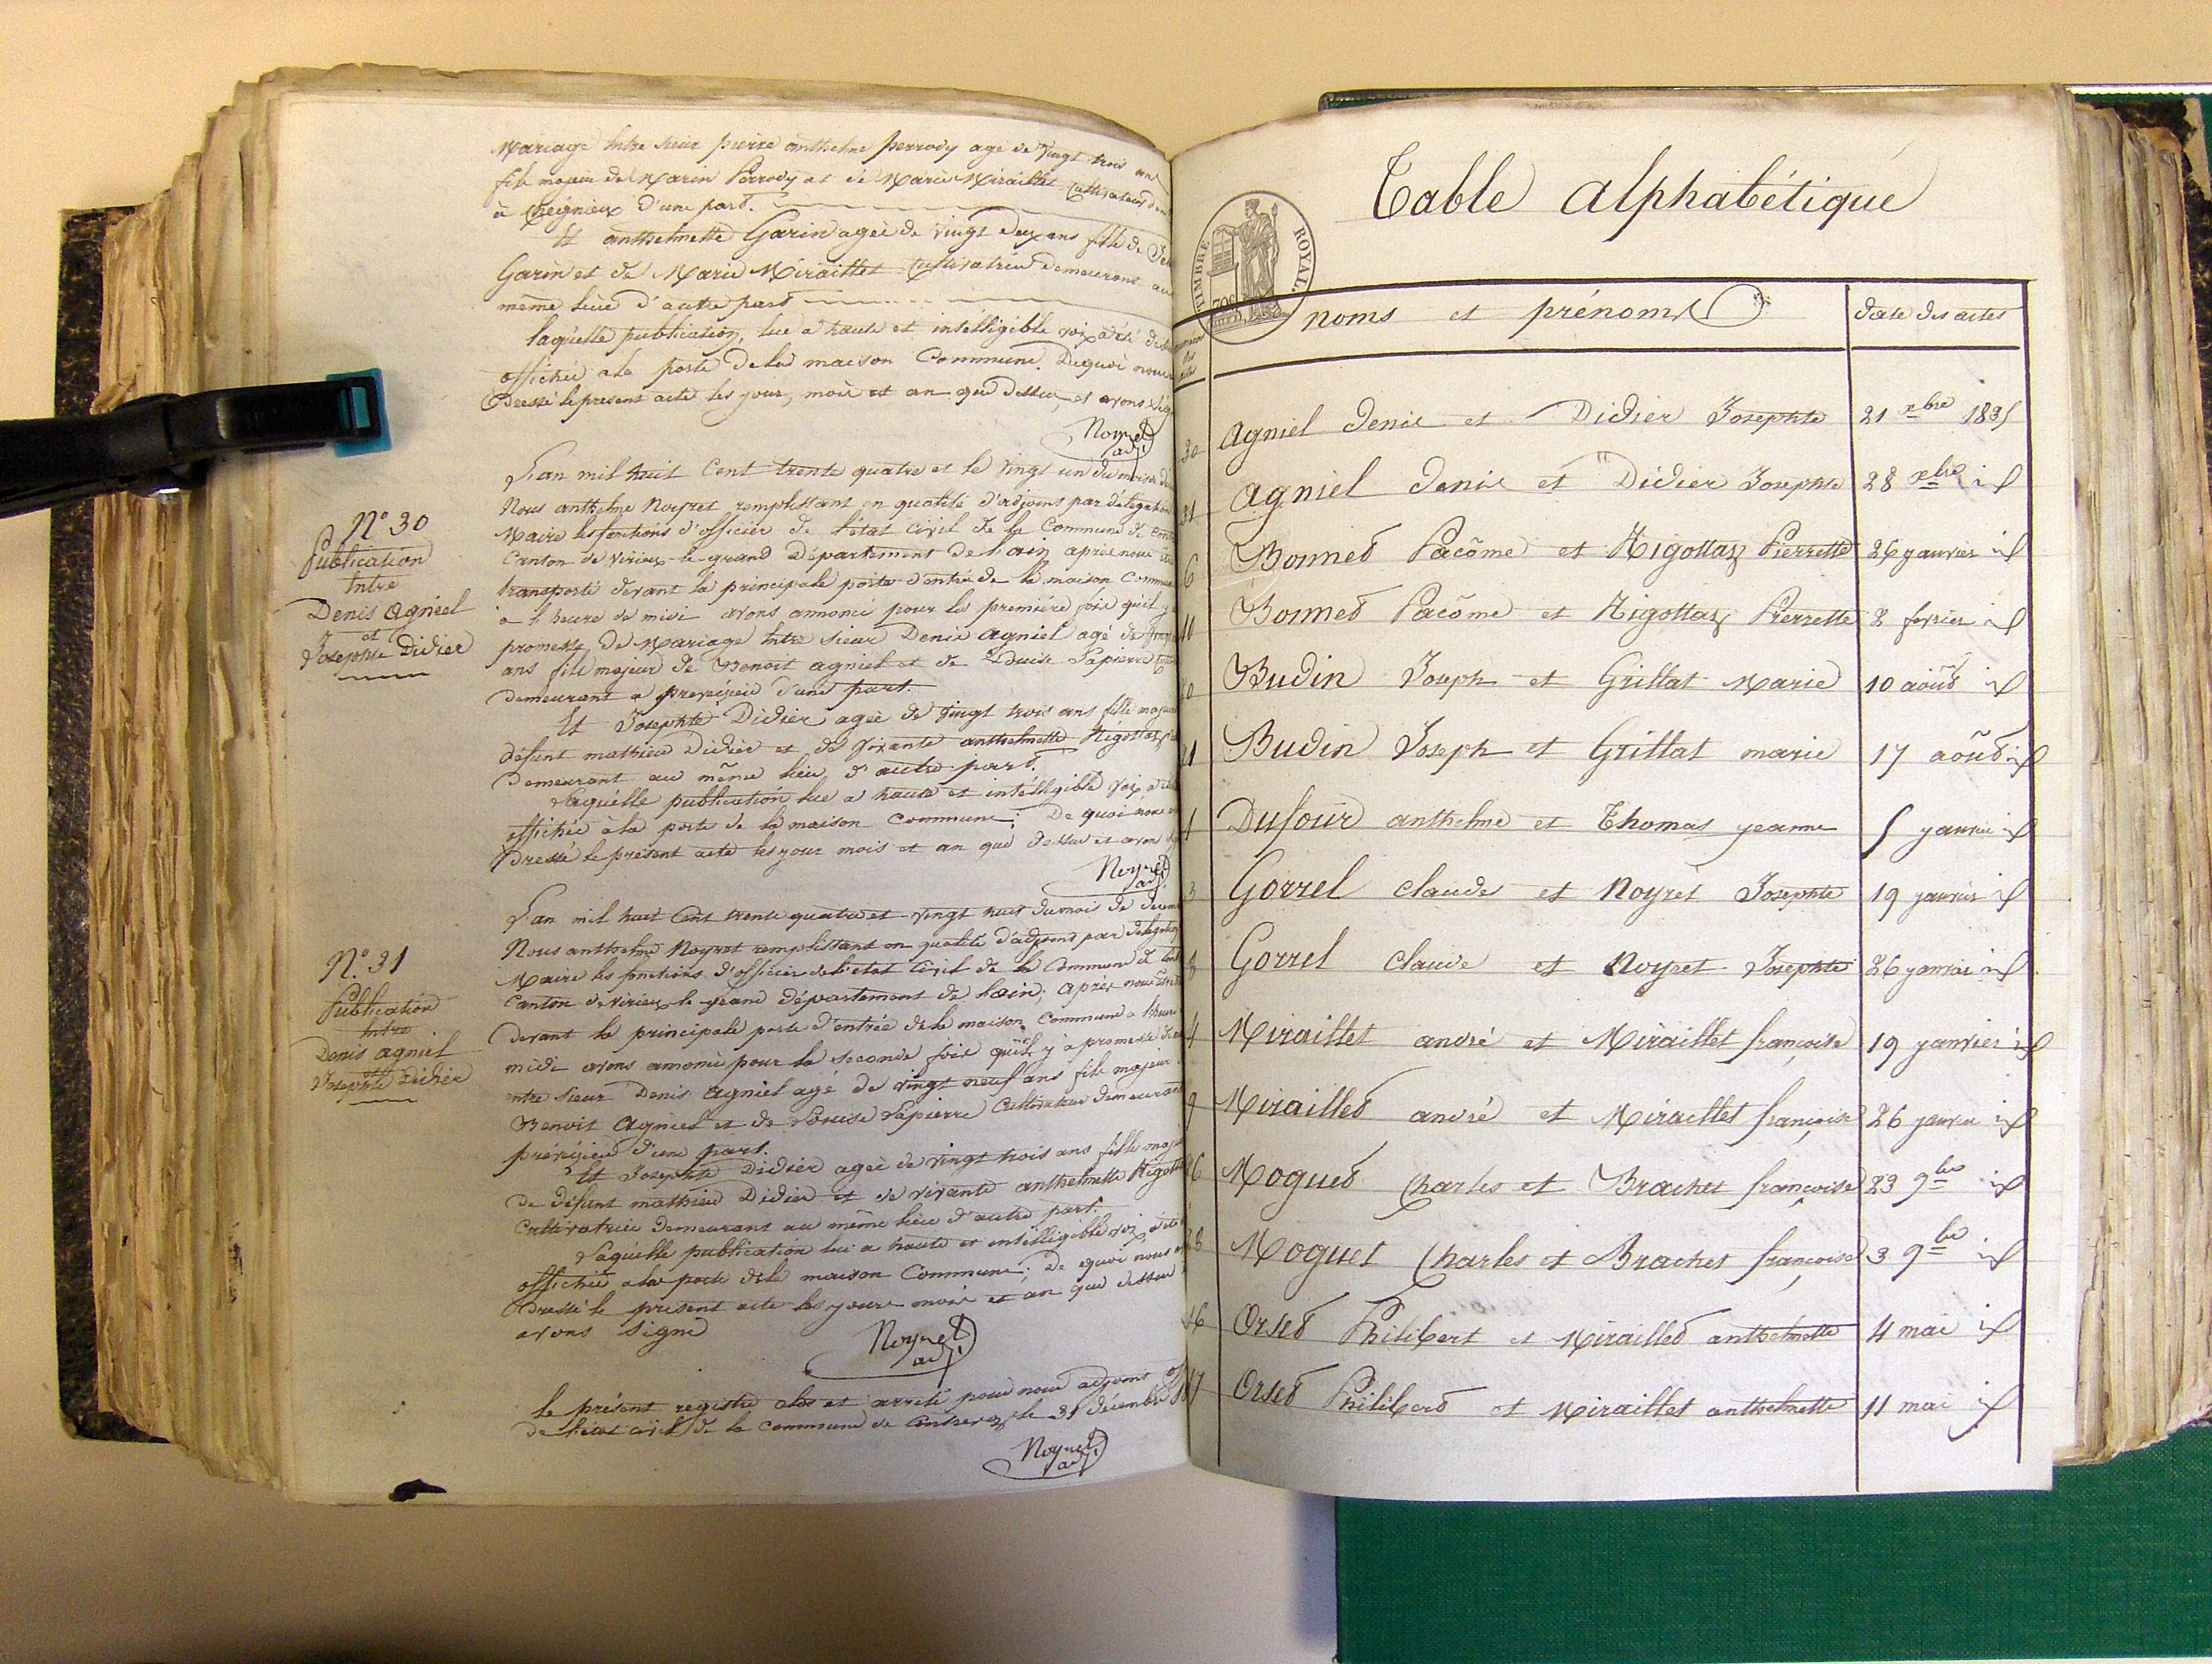 Mariage Entre sieur pierre anthelme perrody agé de vingt trois ans
fils majeur de Marin Perrody et de Marie Miraillet Cultivateur
à Cheignieux d'une part.
Et anthelmette Garin agéé de vingt deux ans fille de
Garin et de Marie Miraillet Cultivatrice demeurant au
même lieu d'autre part
laquélle publication, lue a haute et intélligible voix a été de
affichée a la porte de la maison Commune. De quoi nous
Dressé le present acte les jour, mois et an que dessus, et avons
Noyret
adj
N° 30
Publication
Entre
Denis agniel
et
Josephte Didier
L'an mil huit Cent trente quatre et le vingt un du mois de
Nous anthelme Noyret remplissant en qualité d'adjoint par délégation
Maire les fonctions d'officier de l'état Civil de la Commune de
Canton de Virieux le grand Département de l'ain, après nous être
transporté devant la principale porte d'entrée de la maison Commune
a l'heure de midi avons annoncé pour la première fois qu'il y
promesse de Mariage Entre sieur Denis agniel agé de
ans fils majeur de Benoit agniel et de Louise Lapierre
demeurant a premeisel d'une part.
Et Josephte Didier ageé de vingt trois ans fille majeure
défunt mathieu Didier et de vivante anthelmette Rigottaz
demeurant au même lieu d'autre part.
Laquélle publication lue a haute et intélligible voix a été
affichée à la porte de la maison Commune; De quoi nous
Dressé le présent acte les jour mois et an que dessus et avons
Noyret
adj
N° 31
Publication
Entre
Denis agniel
et
Josephte Didier
L'an mil huit Cent trente quatre et vingt huit du mois de
Nous anthelme Noyret remplissant en qualité d'adjoint par délégation
Maire les fonctions d'officier de l'état Civil de la Commune de
Canton de Virieux le grand département de l'ain; après nous être
Devant la principale porte d'entrée de la maison Commune a l'heure
midi avons annoncé pour la seconde fois qu'il y a promesse de
entre sieur Denis agniel agé de vingt neuf ans fils majeur
Benoit Agniel et de Louise Lapierre Cultivateur demeurant
d'une part.
Et Josephte Didier ageé de vingt trois ans fille
de défunt mathieu Didier et de vivante anthelmette
Cultivatrice demeurant au même lieu d'autre part.
Laquélle publication lue a haute et intélligible voix a été
affichée a la porte de la maison Commune; De quoi nous
Dressé le présent acte les jour mois et an que dessus
avons signé
Noyret
adj
le présent registre clos et arreté par nous adjoint
de l'état civil de la commune de le 31 décembre
Noyret
adj
Table alphabétique
TIMBRE ROYAL
noms et prénoms date des actes
30 agniel Denis et Didier Josephte 21 xbre 1835
31 agniel Denis et Didier Josephte 28 xbre id
6 Bonned Pacôme et Rigottaz Pierrette 26 janvier id
10 Bonned Pacôme et Rigottaz Pierrette 2 fevrier id
20 Budin Joseph et Grillat Marie 10 août id
21 Budin Joseph et Grillat marie 17 août id
1 Dufour anthelme et Thomas jeanne 5 janvier id
3 Gorrel claude et Noyret Josephte 19 janvier id
8 Gorrel claude et Noyret Josephte 26 janvier id
4 Miraillet andré et Miraillet françoise 19 janvier id
9 Mirailled andré et Miraillet françoise 26 janvier id
26 Mogued Charles et Brachet françoise 23 9bre id
28 Moguet Charles et Brachet françoise 3 9bre id
16 Orsed Philibert et Mirailled anthelmette 4 mai id
17 Orsed Philiberd et Miraillet anthelmette 11 mai id